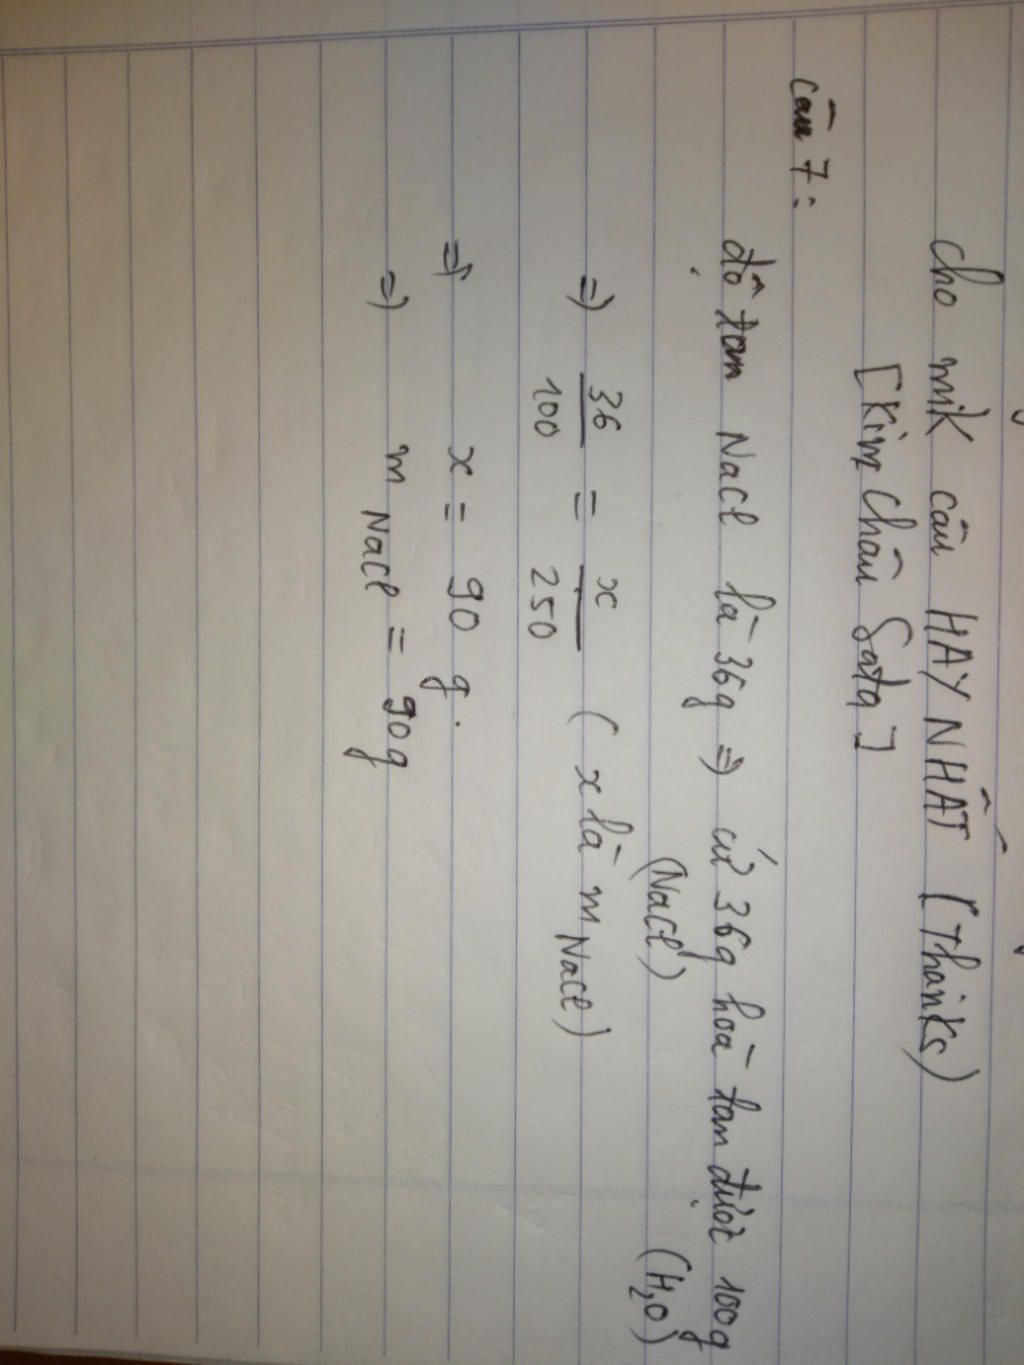 cho mik câu HAY NHẤT (Thanks)
[Kim Châu Sata]
câu 7:
độ tan NaCl là 36g => cứ 36g hoà tan được 100g
(NaCl) (H₂O)
=> 36/100 = x/250 (x là m NaCl)
=> x = 90 g.
=> m NaCl = 90g